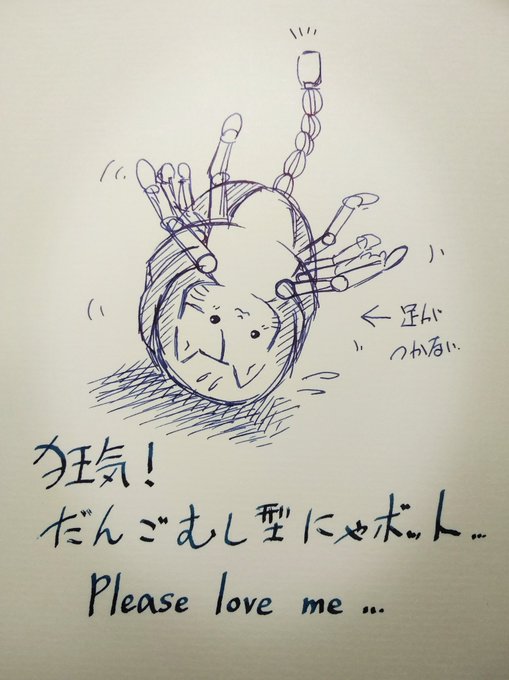 足が
つかない..
狂気!
だんごむし型にゃボット...
Please love me ...